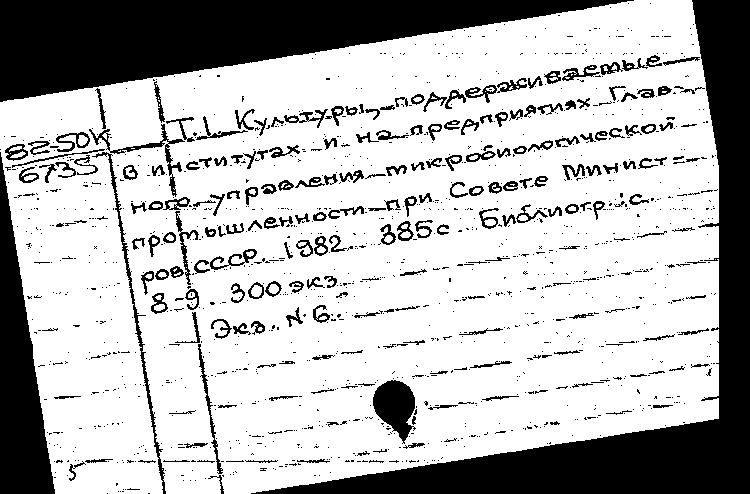 82-50К
6735
Т.1. Культуры, поддерживаемые
в институтах и на предприятиях Глав-
ного управления микробиологической
промышленности при Совете Минист=
ров СССР. 1982. 385с. Библиогр.: с.
8-9. 300 экз.
Экз. N 6.
5